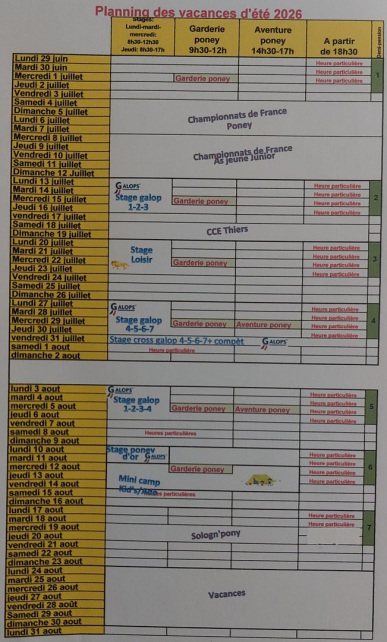 Planning des vacances d'été 2026
Stages:
Lundi-mardi-
mercredi:
9h30-12h30
Jeudi: 9h30-17h
Garderie
poney
9h30-12h
Aventure
poney
14h30-17h
A partir
de 18h30
Demi-pension
Lundi 29 juin Heure particulière
Mardi 30 juin Heure particulière
Mercredi 1 juillet Garderie poney Heure particulière 1
Jeudi 2 juillet
Vendredi 3 juillet
Samedi 4 juillet
Dimanche 5 juillet
Lundi 6 juillet Championnats de France
Poney
Mardi 7 juillet
Mercredi 8 juillet
Jeudi 9 juillet
Vendredi 10 juillet Championnats de France
As jeune Junior
Samedi 11 juillet
Dimanche 12 Juillet
Lundi 13 juillet GALOPS Heure particulière
Mardi 14 juillet Stage galop Heure particulière 2
Mercredi 15 juillet 1-2-3 Garderie poney Heure particulière
Jeudi 16 juillet Heure particulière
vendredi 17 juillet
Samedi 18 juillet
Dimanche 19 juillet CCE Thiers
Lundi 20 juillet Heure particulière
Mardi 21 juillet Stage Heure particulière 3
Mercredi 22 juillet Loisir Garderie poney Heure particulière
Jeudi 23 juillet Heure particulière
Vendredi 24 juillet
Samedi 25 juillet
Dimanche 26 juillet
Lundi 27 juillet GALOPS Heure particulière
Mardi 28 juillet Stage galop Heure particulière
Mercredi 29 juillet 4-5-6-7 Garderie poney Aventure poney Heure particulière 4
Jeudi 30 juillet Heure particulière
vendredi 31 juillet Stage cross galop 4-5-6-7+ compèt GALOPS
samedi 1 aout Heure particulière
dimanche 2 aout
lundi 3 aout GALOPS Heure particulière
mardi 4 aout Stage galop Heure particulière
mercredi 5 aout 1-2-3-4 Garderie poney Aventure poney Heure particulière 5
jeudi 6 aout Heure particulière
vendredi 7 aout
samedi 8 aout Heures particulières
dimanche 9 aout
lundi 10 aout Stage poney
d'or GALOPS Heure particulière
mardi 11 aout Heure particulière
mercredi 12 aout Garderie poney Heure particulière 6
jeudi 13 aout Mini camp Heure particulière
vendredi 14 aout
samedi 15 aout Heures particulières
dimanche 16 aout
lundi 17 aout Heure particulière
mardi 18 aout Heure particulière 7
mercredi 19 aout
jeudi 20 aout Sologn'pony
vendredi 21 aout
samedi 22 aout
dimanche 23 aout
lundi 24 aout
mardi 25 aout
mercredi 26 aout
jeudi 27 aout Vacances
vendredi 28 août
Samedi 29 aout
dimanche 30 aout
lundi 31 aout